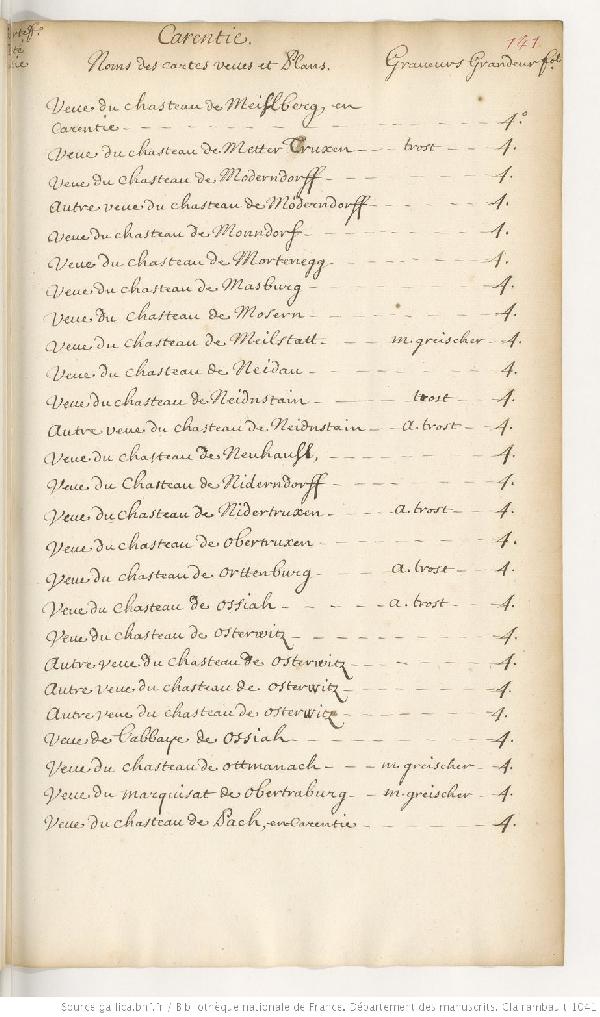 Carentie. 141.
Noms des cartes veues et Plans. Graveurs Grandeur fol.
Veue du chasteau de Meislberg, en
Carentie 4.º
Veue du chasteau de Metter Truxen trost 4.
Veue du chasteau de Moderndorff 4.
Autre veue du chasteau de Möderndorff 4.
Veue du chasteau de Monndorf 4.
Veue du chasteau de Mortenegg 4.
Veue du chasteau de Masburg 4.
Veue du chasteau de Mosern 4.
Veue du chasteau de Meilstatt m. greischer 4.
Veue du chasteau de Neidau 4.
Veue du chasteau de Neidnstain trost 4.
Autre veue du chasteau de Neidnstain a. trost 4.
Veue du chasteau de Neuhausl, 4.
Veue du Chasteau de Niderndorff 4.
Veue du chasteau de Nidertruxen a. trost 4.
Veue du chasteau de obertruxen 4.
Veue du chasteau de orttenburg a. trost 4.
Veue du chasteau de ossiah a. trost 4.
Veue du chasteau de osterwitz 4.
Autre veue du chasteau de osterwitz 4.
Autre veue du chasteau de osterwitz 4.
Autre veue du chasteau de osterwitz 4.
Veue de l'abbaye de ossiah 4.
Veue du chasteau de ottmanach m. greischer 4.
Veue du marquisat de obertraburg m. greischer 4.
Veue du chasteau de Pach, en Carentie 4.
Source gallica.bnf.fr / Bibliothèque nationale de France. Département des manuscrits. Clairambault 1041